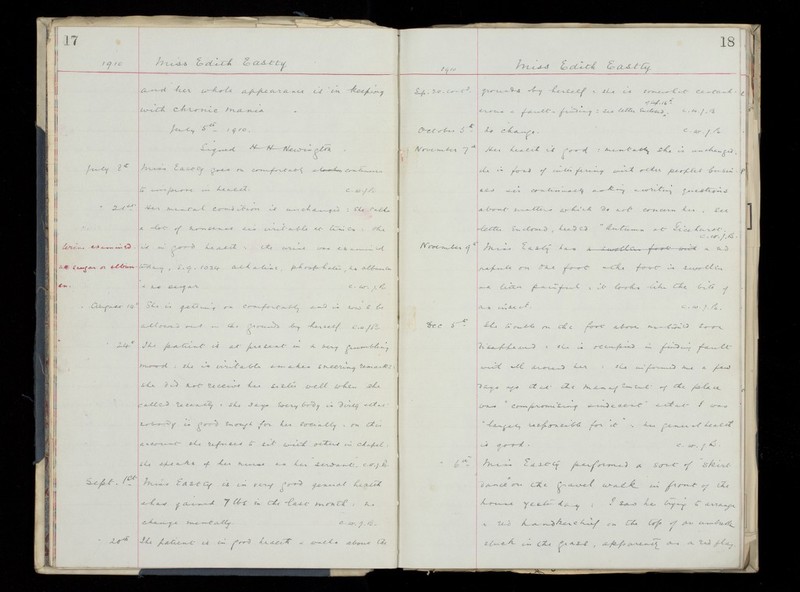 17
1910
Miss Edith Eastty
and her whole appearance is in keeping
with chronic mania.
July 5th 1910.
Signed H H Newington.
July 7th Miss Eastty goes on comfortably continues
to improve in health.
Her mental condition is unchanged: she talks
a lot of nonsense and is irritable at times. She
Urine examined
is in good health. The urine was examined
no sugar or albumen
today, s.g. 1024 alkaline, phosphates, no albumen
no sugar
August She is getting on comfortably and is to be
allowed out in the grounds by herself.
24th The patient is at present in a very grumbling
mood. She is irritable makes sneering remarks:
she did not receive her sister well when she
called recently. She says everybody is dirty
nobody is good enough for her socially: on this
account she refuses to sit with others in chapel.
She speaks of her nurse as her "servant".
Sept. 1st Miss Eastty is in very good general health
has gained 7 lbs in the last month. No
change mentally.
20th The patient is in good health & walks about the
18
1910
Miss Edith Eastty
Sep. 20. cont. grounds by herself. She is somewhat
fault-finding: see letter
October 5th No change.
November 7th Her health is good: mentally she is unchanged.
She is fond of interfering with other people's
continually asking questions
about matters which do not concern her. See
letter enclosed, headed
November 9th Miss Eastty has a red
papule on the foot & the foot is swollen
painful: it looks like the bite of
an insect.
Dec 5th The on the foot above mentioned soon
disappeared: she is occupied in finding fault
with all around her: she informed me a few
days ago that the management of the place
was "compromising indecent" & that I was
"largely responsible for it": her general health
is good.
6th Miss Eastty performed a sort of "skirt
dance" on the gravel walk in front of the
house yesterday: I saw her trying to arrange
a red handkerchief on the top of an umbrella
stuck in the grass, apparently as a red flag